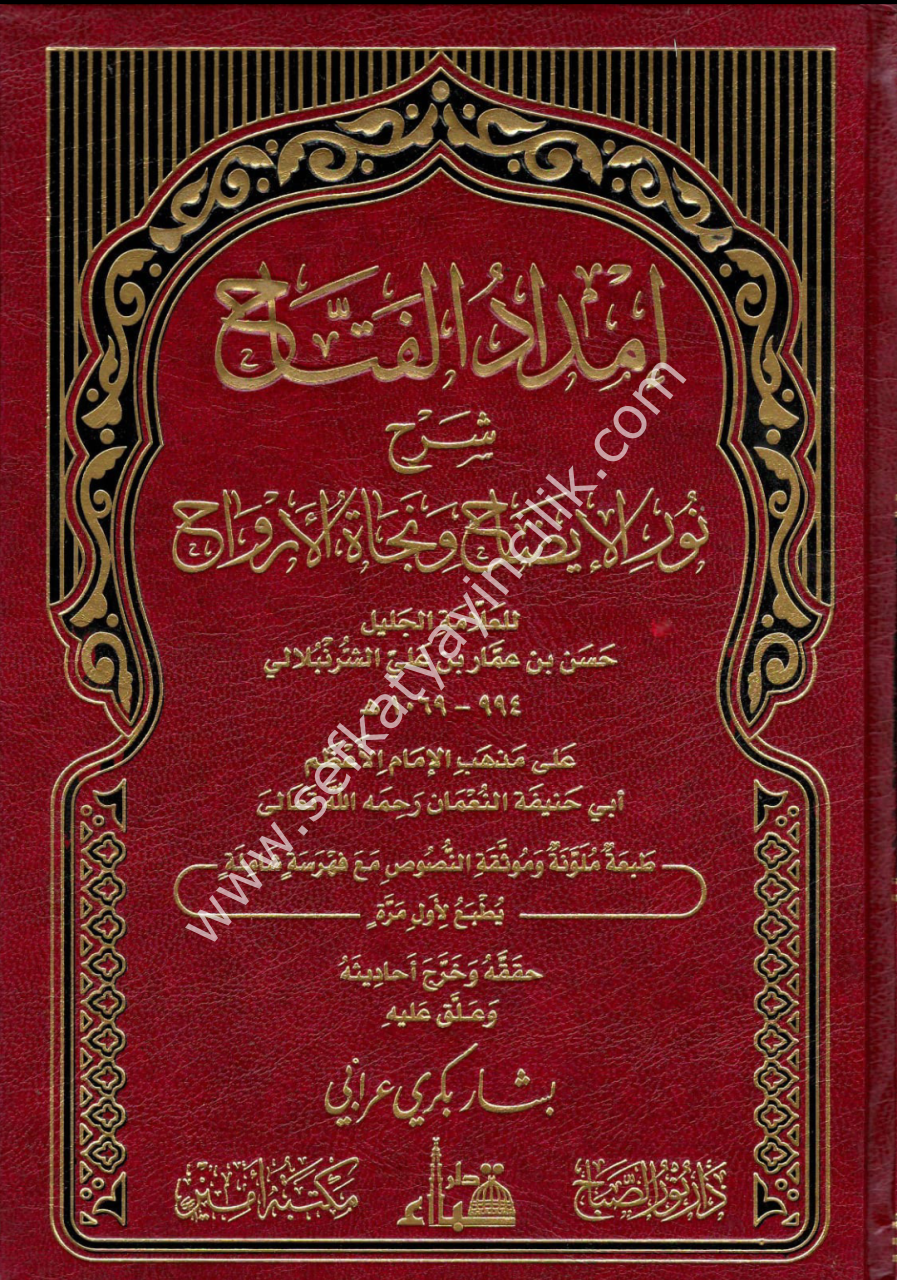 إِمْدَادُ الفَتَّاحِ
شَرْح
نُورِ الإِيضَاحِ وَنَجَاةُ الأَرْوَاحِ
للعلّامة الجليل
حَسَن بن عمّار بن عَليّ الشُّرُنبُلالي
٩٩٤ - ١٠٦٩ هـ
عَلى مَذهَبِ الإمَامِ الأعْظَم
أبي حَنيفَة النُّعْمَان رَحِمَه اللهُ تعَالَىٰ
طَبعَةٌ مُلَوَّنَةٌ وَمُوثَّقَةِ النُّصُوصِ مَعَ فَهْرَسَةٍ
يُطْبَعُ لِأَولِ مَرَّةٍ
حقَقَّهُ وَخَرَّجَ أحادِيثَهُ
وَعَلَّق عَليهِ
بشار بكري عرابي
دَارُ نُورِ الصَّبَاحِ
دار قباء
مكتبة أمين
www.sefkatyayincilik.com